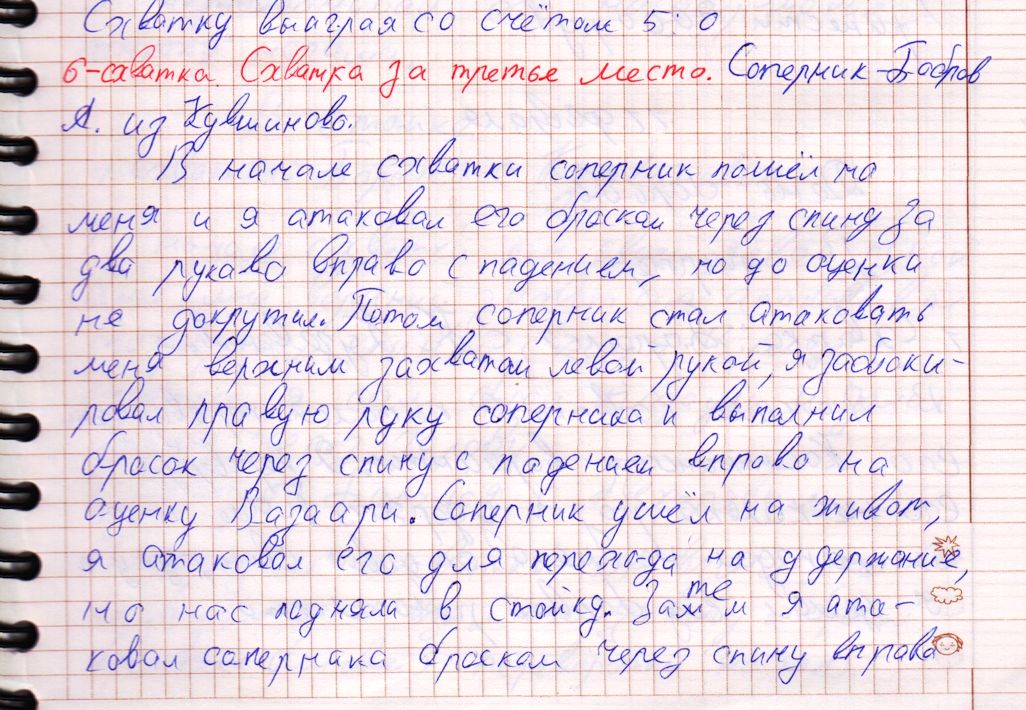 Схватку выиграл со счётом 5:0
6-схватка. Схватка за третье место. Соперник-Бобров
А. из Кувшиново.
В начале схватки соперник пошёл на
меня и я атаковал его броском через спину за
два рукава вправо с падением, но до оценки
не докрутил. Потом соперник стал атаковать
меня верхним захватом левой рукой, я заблоки-
ровал правую руку соперника и выполнил
бросок через спину с падением вправо на
оценку Вазаари. Соперник ушёл на живот,
я атаковал его для перехода на удержание,
но нас подняли в стойку. Затем я ата-
ковал соперника броском через спину вправо